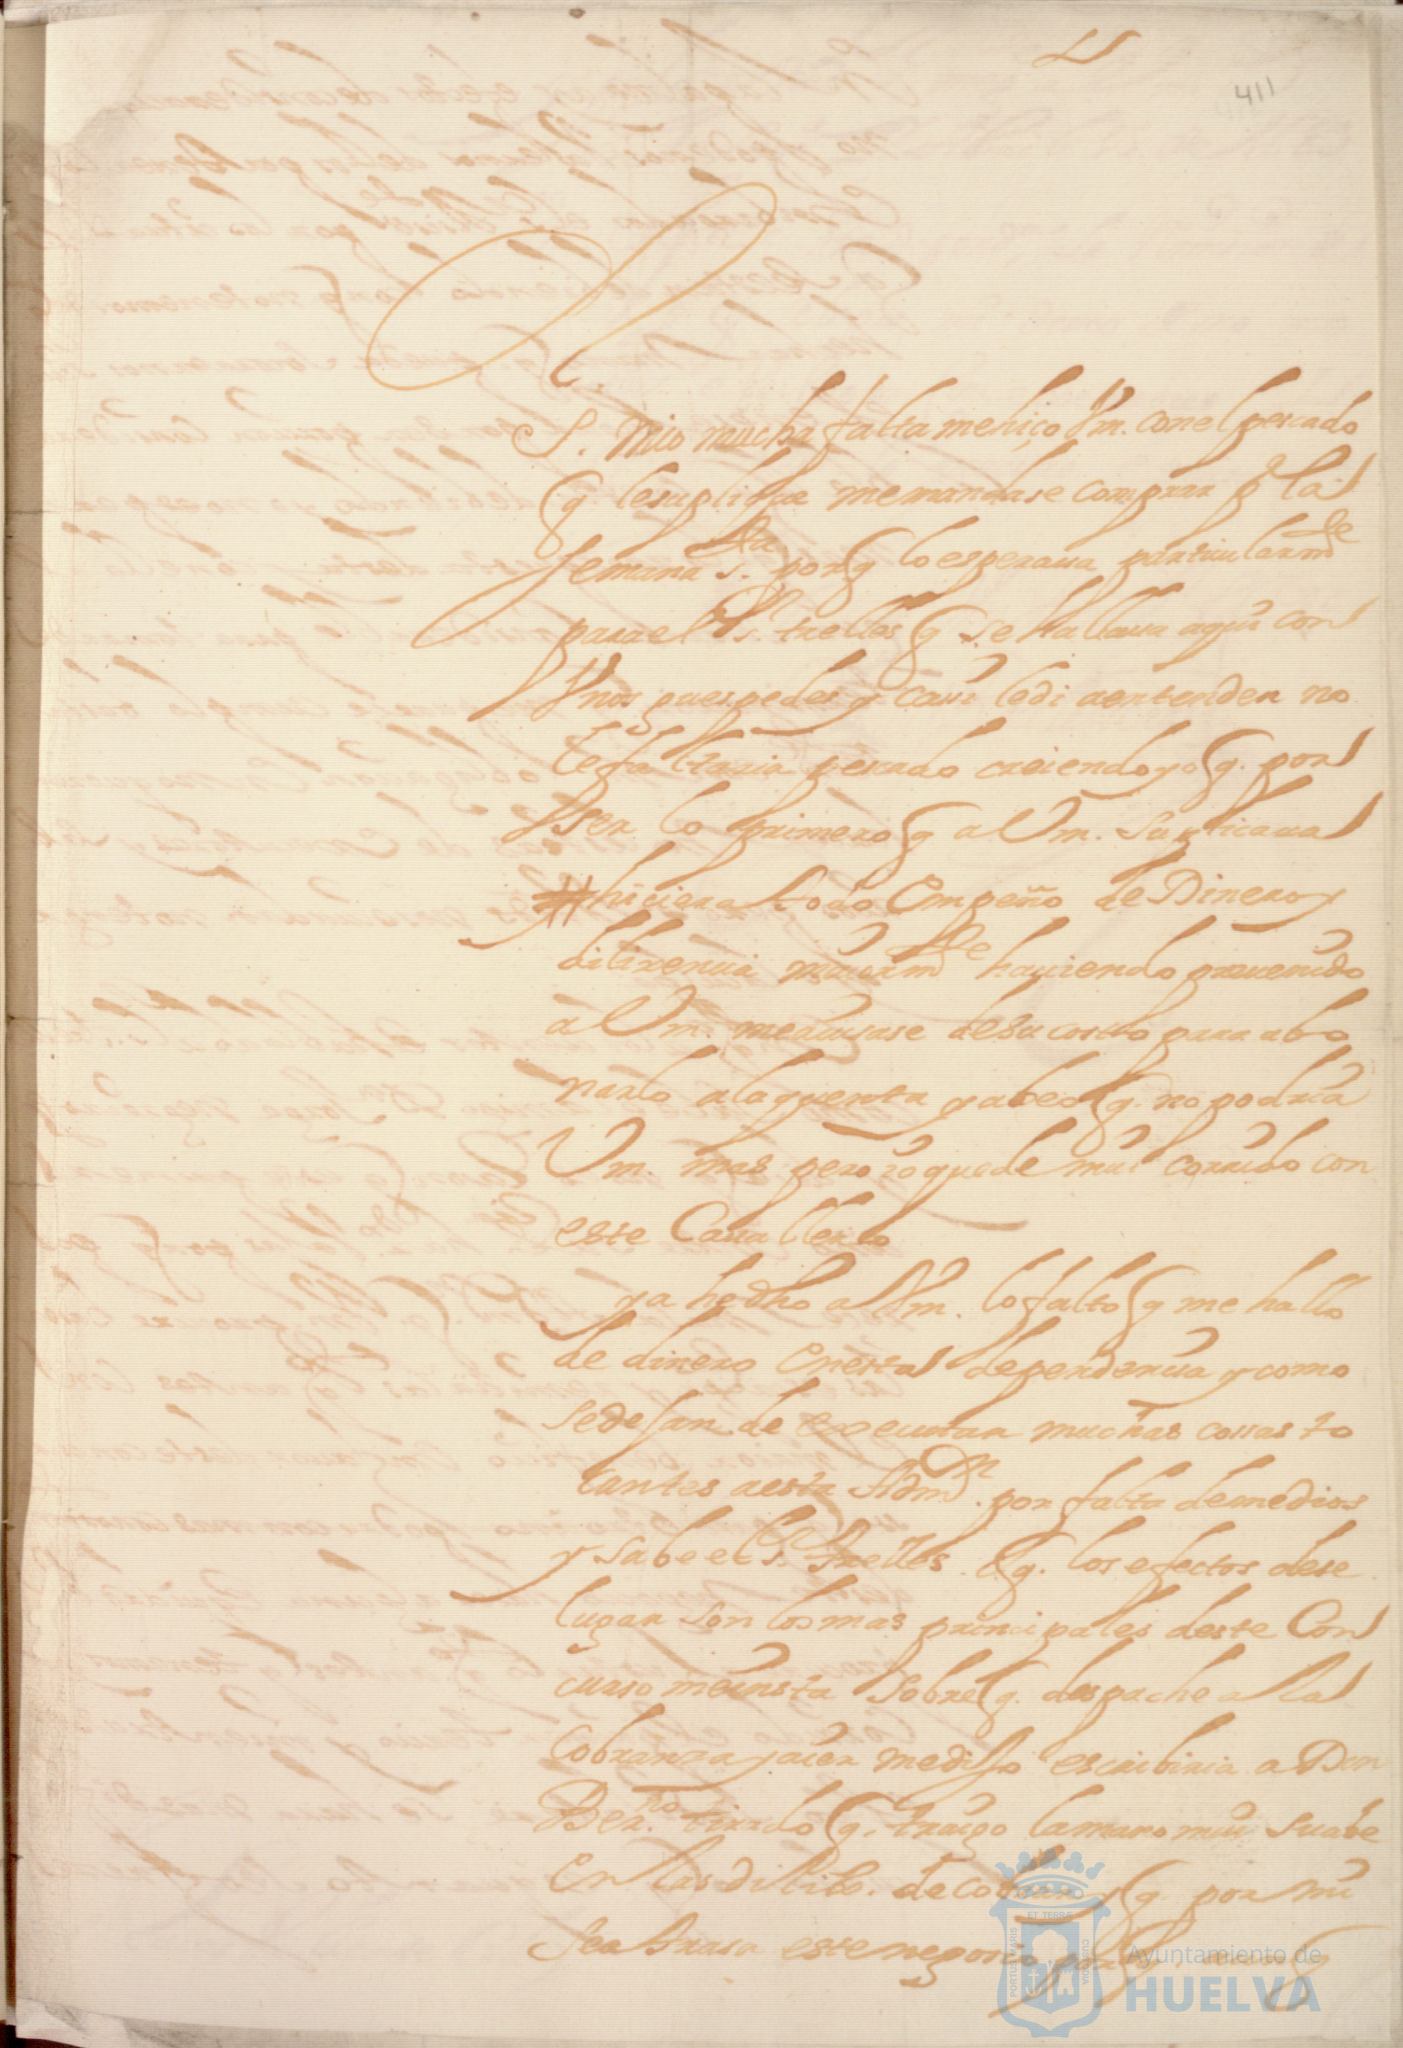 411
S. Mio mucha falta mehiço Vm. con el pescado
q lesuplique memandase comprar pa la
semana sta. porq lo esperaua particularmde
para el sl. trelles q se hallaua aqui con
Vnos guespedes y casi ledi aentender no
le faltaria pescado creiendo yo q. por
ser lo primero q a Vm. suplicaua
hiciera todo Empeño de Dinero y
dilixencia maiormde hauiendo preuenido
a Vm. meauisase desu costto para abo
narlo ala quenta y a beo q. no podria
Vm. mas pero io quede mui corrido con
este Cauallero
ya he dho a Vm. lo falto q me hallo
de dinero En esta dependencia y como
se dejan de executar muchas cossas to
cantes aesta Admon. por falta demedios
y sabe el sl. trelles. q. los efectos dese
lugar son los mas principales deste Con
curso meinsta sobre q. despache a la
Cobranza y aier me dijo escribiria a Don
Berno. tirado q. traigo lamano mui suabe
En las dilixs. de cobrar y q. por mi
se atrasa este negocio porq.
ET TERRAE
PORTUS MARIS
CUSTODIA
Ayuntamiento de
HUELVA